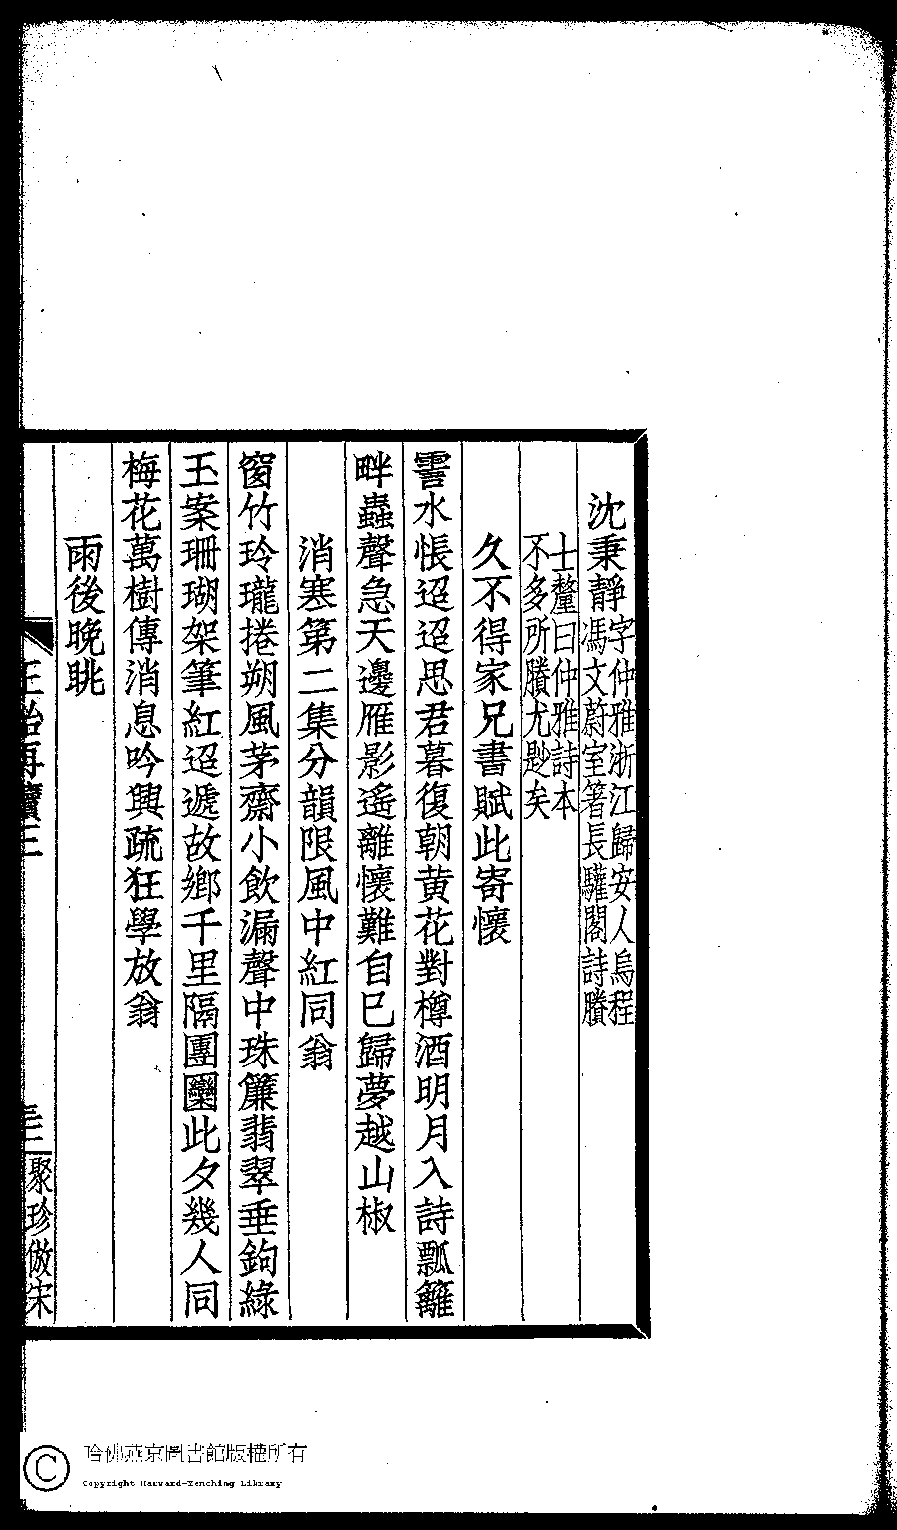 沈秉靜字仲雅浙江歸安人烏程
馮文蔚室箸長驩閣詩賸
士釐曰仲雅詩本
不多所賸尤尟矣
久不得家兄書賦此寄懷
霅水悵迢迢思君暮復朝黃花對樽酒明月入詩瓢籬
畔蟲聲急天邊雁影遙離懷難自巳歸夢越山椒
消寒第二集分韻限風中紅同翁
窗竹玲瓏捲朔風茅齋小飲漏聲中珠簾翡翠垂鉤綠
玉案珊瑚架筆紅迢遞故鄉千里隔團圞此夕幾人同
梅花萬樹傳消息吟興疏狂學放翁
雨後晚眺
正始再續三
聚珍倣宋
哈佛燕京圖書館版權所有
Copyright Harvard-Yenching Library